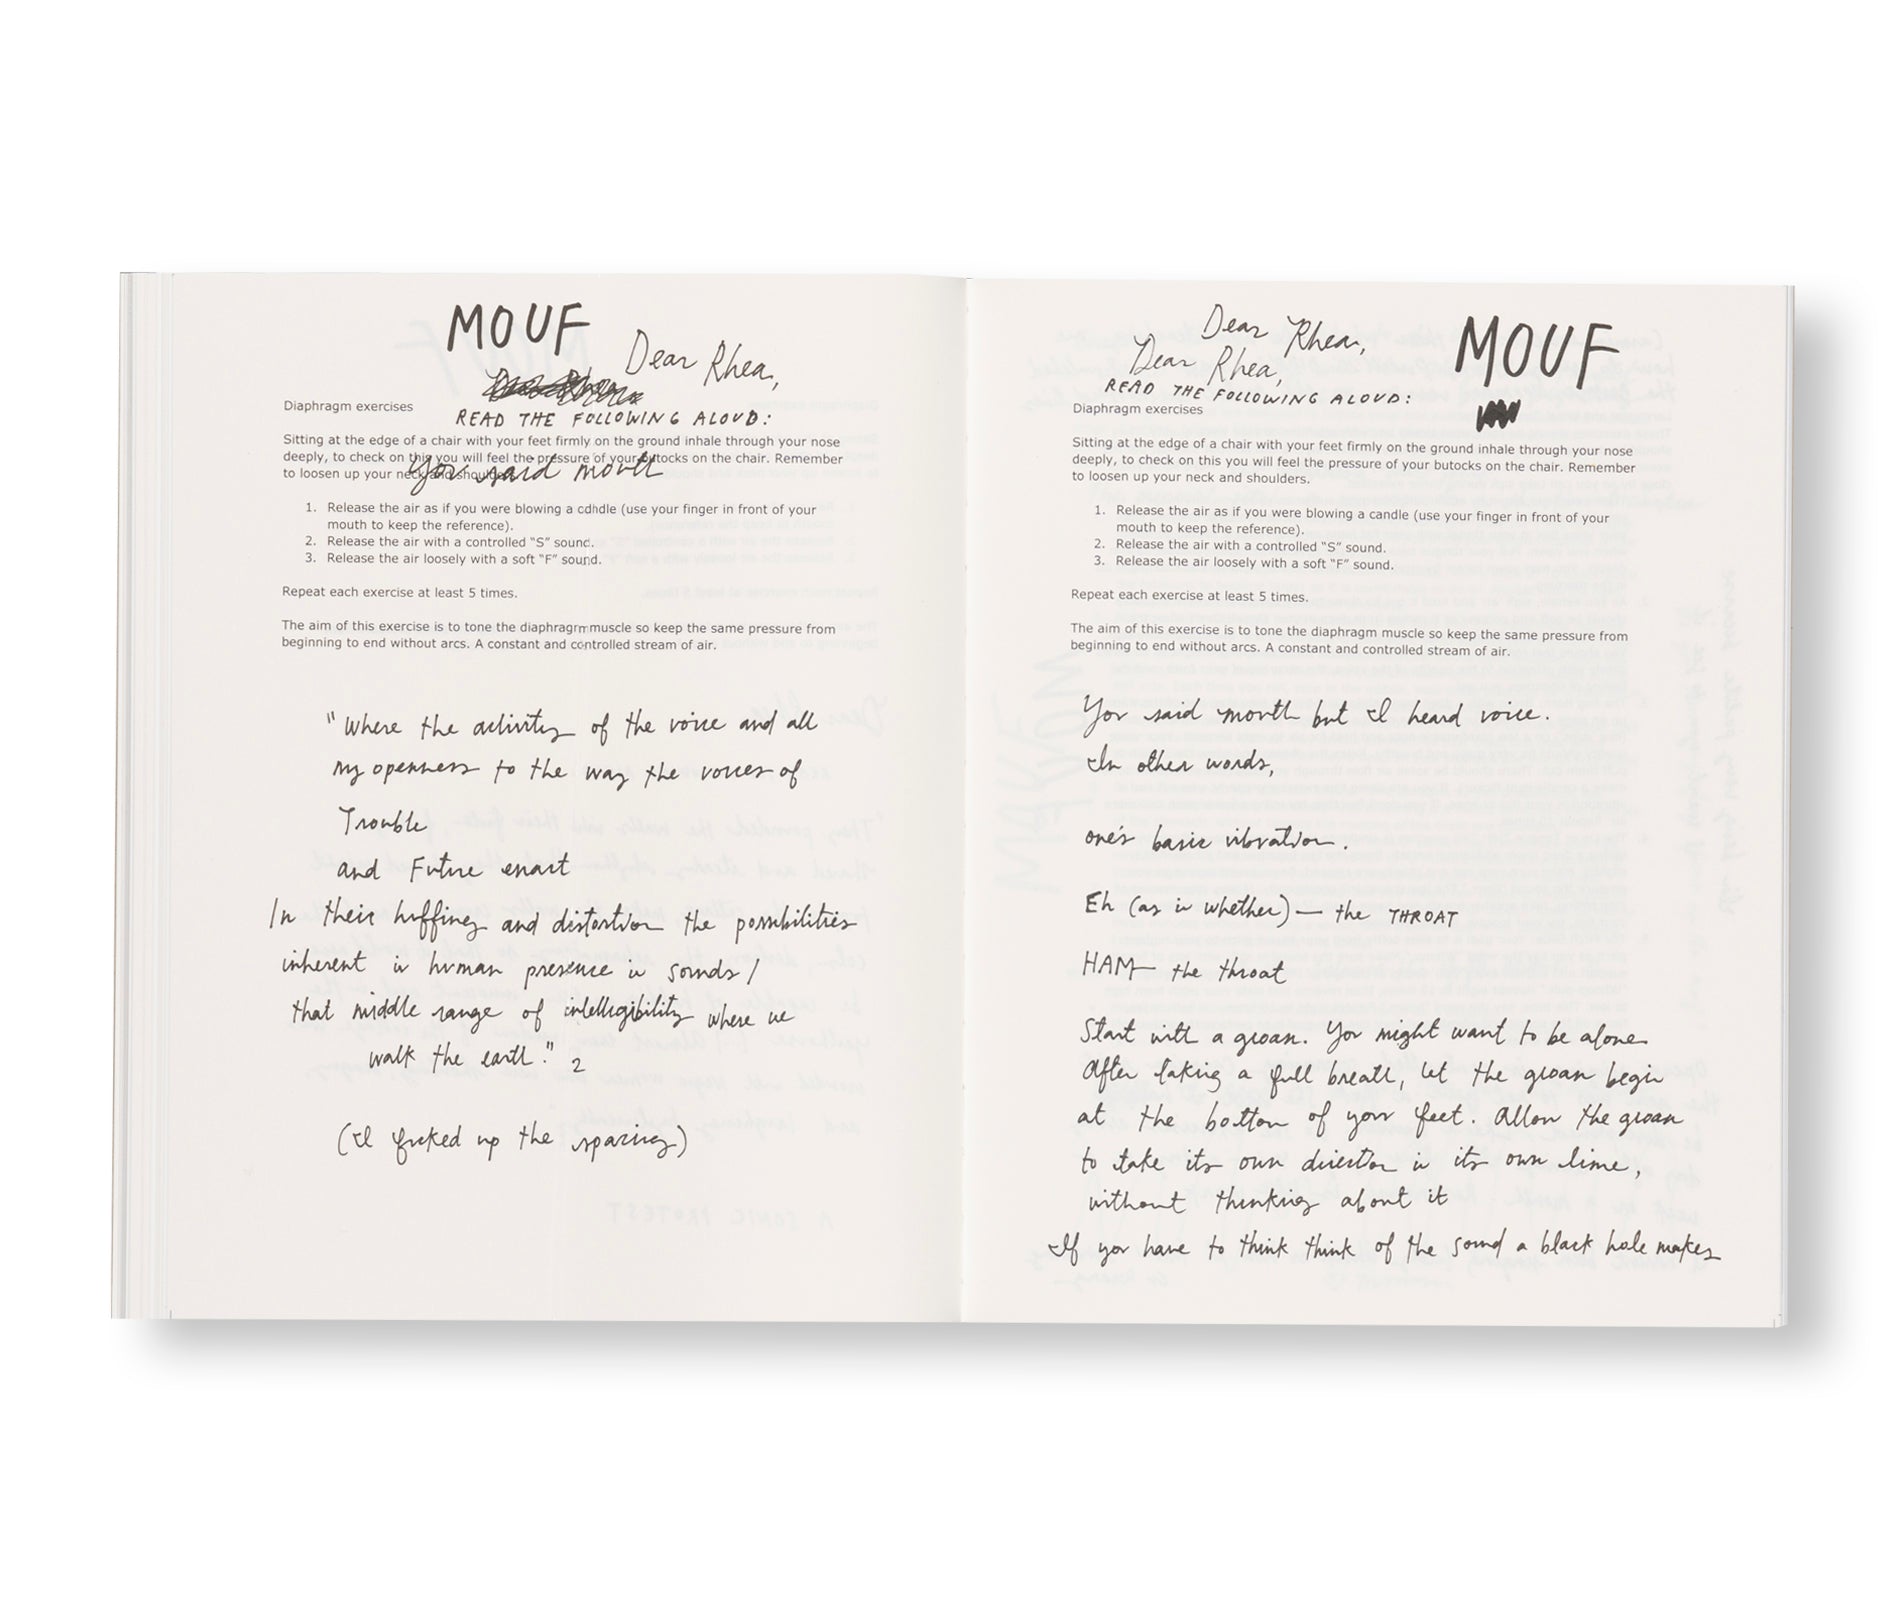 MOUF
Dear Rhea,
READ THE FOLLOWING ALOUD:
Diaphragm exercises
Sitting at the edge of a chair with your feet firmly on the ground inhale through your nose
deeply, to check on this you will feel the pressure of your butocks on the chair. Remember
to loosen up your neck and shoulders.
You said mouth
1. Release the air as if you were blowing a candle (use your finger in front of your
mouth to keep the reference).
2. Release the air with a controlled “S” sound.
3. Release the air loosely with a soft “F” sound.
Repeat each exercise at least 5 times.
The aim of this exercise is to tone the diaphragm muscle so keep the same pressure from
beginning to end without arcs. A constant and controlled stream of air.
"Where the activity of the voice and all
my openness to the way the voices of
Trouble
and Future enact
In their huffing and distortion the possibilities
inherent in human presence in sounds/
that middle range of intelligibility where we
walk the earth." 2
(I fucked up the spacing)
Dear Rhea,
Dear Rhea,
MOUF
READ THE FOLLOWING ALOUD:
Diaphragm exercises
Sitting at the edge of a chair with your feet firmly on the ground inhale through your nose
deeply, to check on this you will feel the pressure of your butocks on the chair. Remember
to loosen up your neck and shoulders.
1. Release the air as if you were blowing a candle (use your finger in front of your
mouth to keep the reference).
2. Release the air with a controlled “S” sound.
3. Release the air loosely with a soft “F” sound.
Repeat each exercise at least 5 times.
The aim of this exercise is to tone the diaphragm muscle so keep the same pressure from
beginning to end without arcs. A constant and controlled stream of air.
You said mouth but I heard voice.
In other words,
one's basic vibration.
Eh (as in whether) — the THROAT
HAM — the throat
Start with a groan. You might want to be alone
After taking a full breath, let the groan begin
at the bottom of your feet. Allow the groan
to take its own direction in its own time,
without thinking about it
If you have to think think of the sound a black hole makes